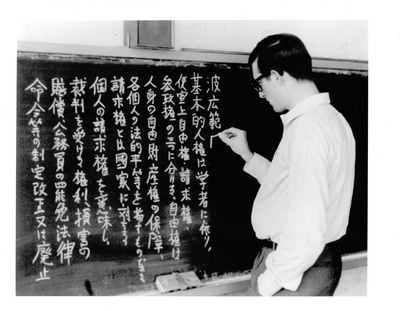 波広範
基本的人権は学者に依り、
便宜上自由権、請求権、
参政権、の三に分ける、自由権は
人身の自由、財産権の保障、
各個人の法的平等を指すものである
請求権とは國家に対する
個人の請求権を意味し、
裁判を受ける権利、損害の
賠償、公務員の罷免、法律
命令等の制定改正又は廃止